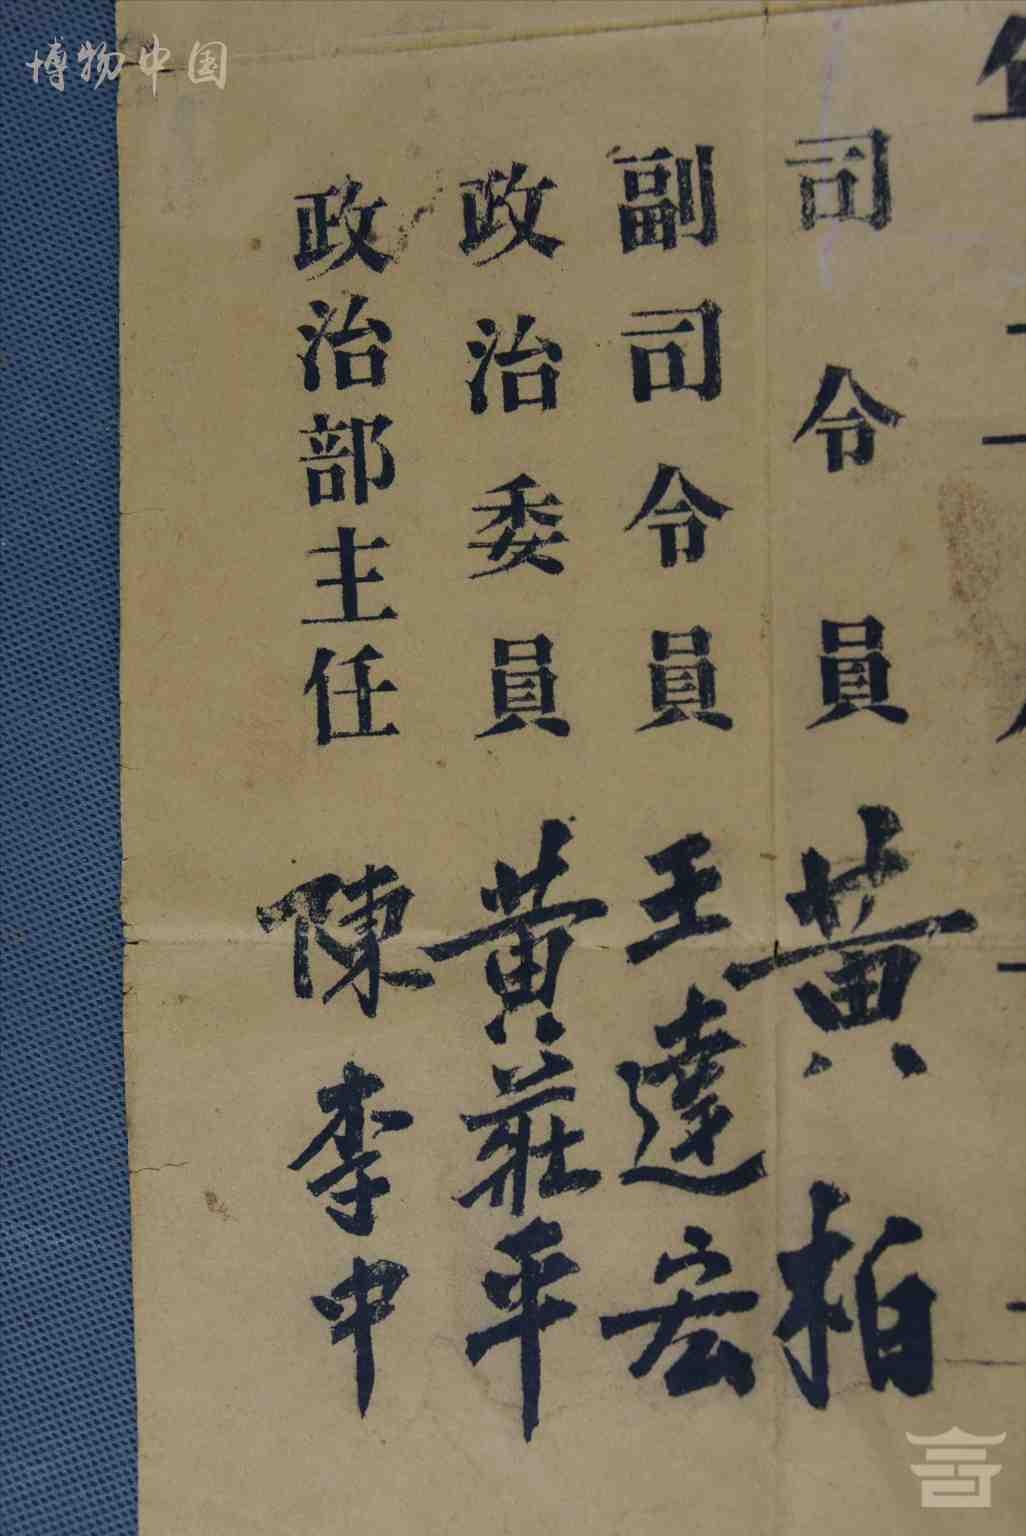 博物中国
司令員 黄柏
副司令員 王達宏
政治委員 黄莊平
政治部主任 陳李中